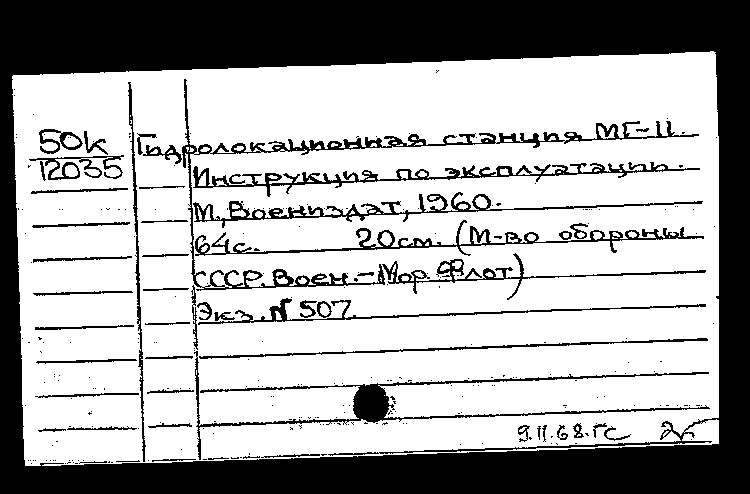 50к
12035
Гидролокационная станция МГ-11.
Инструкция по эксплуатации.
М., Воениздат, 1960.
64с. 20см. (М-во обороны
СССР. Воен.-Мор. Флот)
Экз. № 507.
9.II.68.ГС